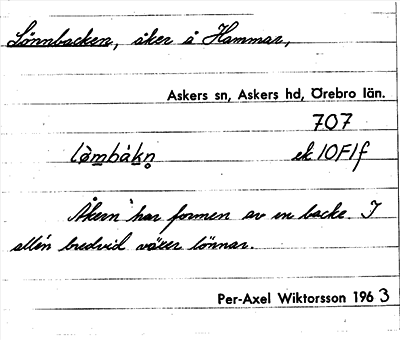 Lönnbacken, åker å Hammar,
Askers sn, Askers hd, Örebro län.
707
lòmbàkn̥ ek 10F1f
Åkern har formen av en backe. I
allén bredvid växer lönnar.
Per-Axel Wiktorsson 1963